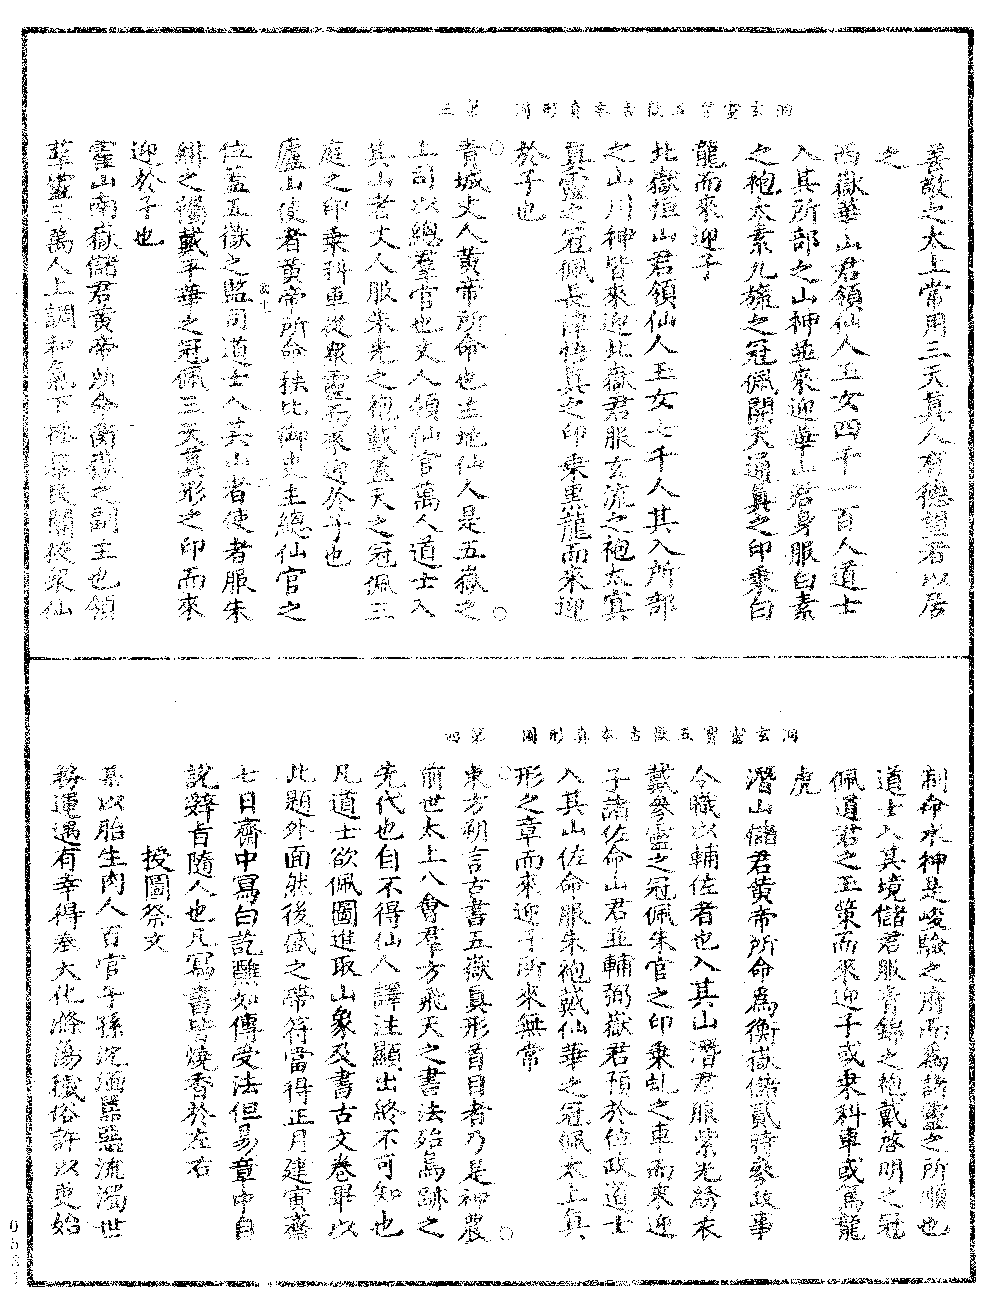 洞玄靈寶五嶽古本真形圖　第三
善敵之太上常用三天真人有德望者以居
之
西嶽華山君領仙人玉女四千一百人道士
入其所部之山神並來迎華山君身服白素
之袍太素九旒之冠佩開天通真之印乘白
龍而來迎子
北嶽恒山君領仙人玉女七千人其入所部
之山川神皆來迎北嶽君服玄流之袍太冥
真靈之冠佩長津悟真之印乘黑龍而來迎
於子也
青城丈人黃帝所命也主地仙人是五嶽之
上司以總羣官也丈人領仙官萬人道士入
其山者丈人服朱光之袍戴蓋天之冠佩三
庭之印乘科車從衆靈而來迎於子也
廬山使者黃帝所命秩比御史主總仙官之
位蓋五嶽之監司道士入其山者使者服朱
緋之袍戴平華之冠佩三天真形之印而來
迎於子也
霍山南嶽儲君黃帝所命衡嶽之副主也領
羣靈三萬人上調和氣下拯黎民閱校衆仙
洞玄靈寶五嶽古本真形圖　第四
制命水神是峻驗之府而爲諸靈之所順也
道士入其境儲君服青錦之袍戴啓明之冠
佩道君之玉策而來迎子或乘科車或駕龍
虎
潛山儲君黃帝所命爲衡嶽儲貳時參政事
令職以輔佐者也入其山潛君服紫光綉衣
戴參靈之冠佩朱官之印乘虬之車而來迎
子諸佐命山君並輔弼嶽君預於位政道士
入其山佐命服朱袍戴仙華之冠佩太上真
形之章而來迎子所來無常
東方朔言古書五嶽真形首目者乃是神農
前世太上八會羣方飛天之書法殆鳥跡之
先代也自不得仙人譯注顯出終不可知也
凡道士欲佩圖進取山象及書古文卷畢以
此題外面然後盛之帶符當得正月建寅齋
七日齋中寫白訖醮如傳受法但易章中自
說辭旨隨人也凡寫書皆燒香於左右
授圖祭文
某以胎生肉人百官子孫沱湎罪惡流濁世
務運遇有幸得奉大化滌蕩穢俗許以更始